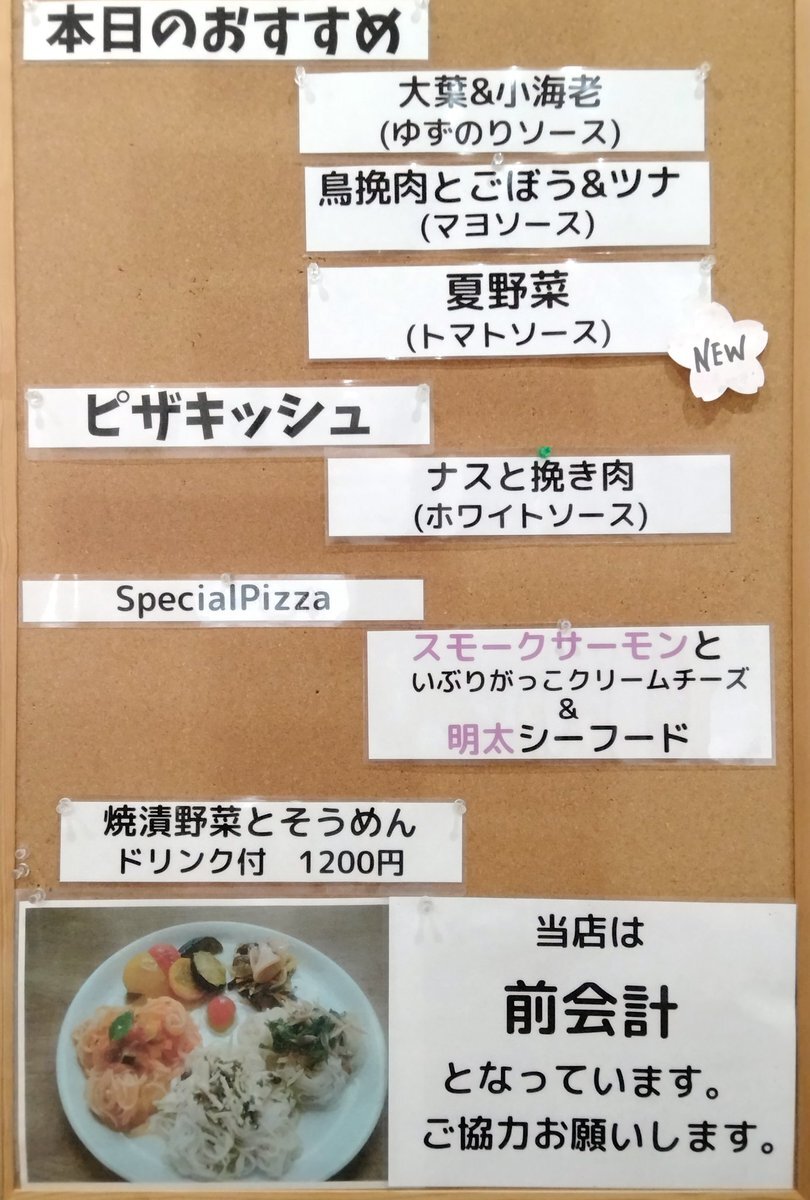 本日のおすすめ
大葉&小海老
(ゆずのりソース)
鳥挽肉とごぼう&ツナ
(マヨソース)
夏野菜
(トマトソース)
NEW
ピザキッシュ
ナスと挽き肉
(ホワイトソース)
SpecialPizza
スモークサーモンと
いぶりがっこクリームチーズ
&
明太シーフード
焼漬野菜とそうめん
ドリンク付　1200円
当店は
前会計
となっています。
ご協力お願いします。